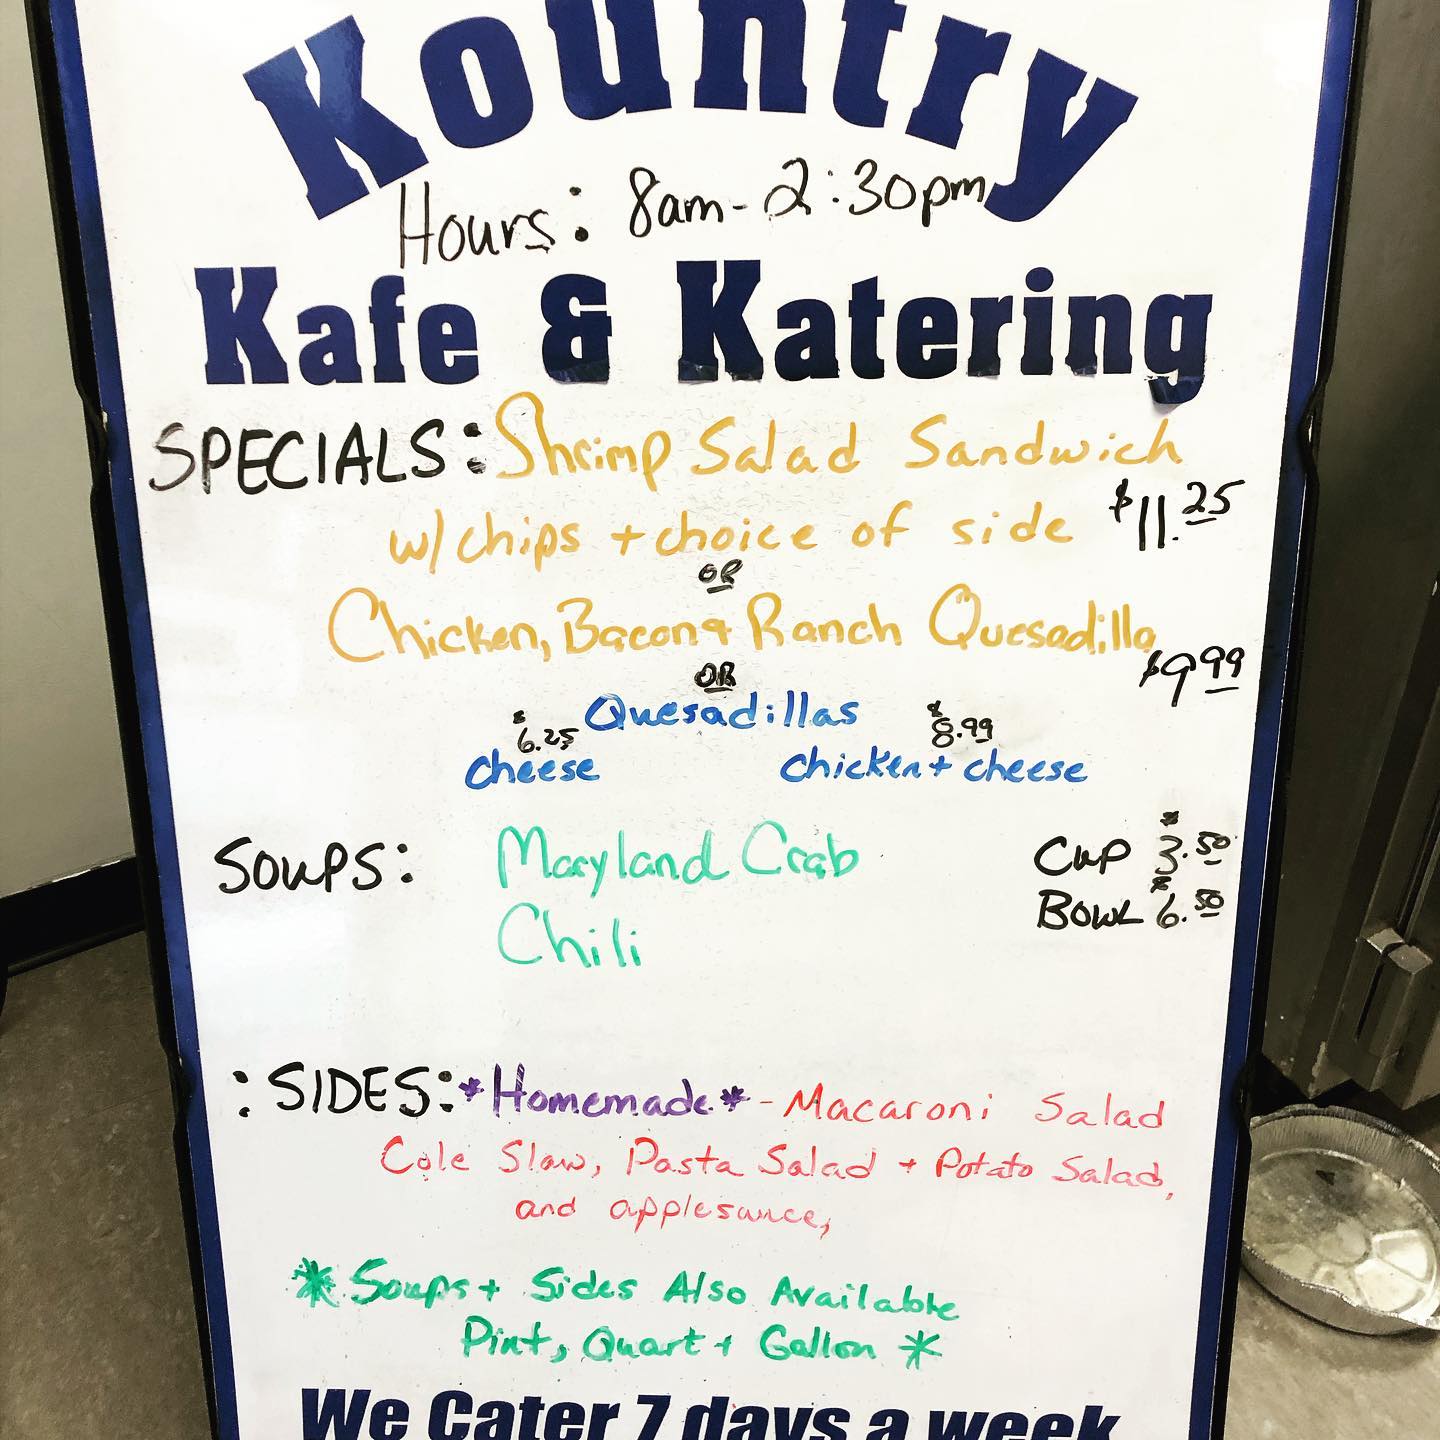 Kountry
Hours: 8am-2:30pm
Kafe & Katering
SPECIALS: Shrimp Salad Sandwich
w/chips + choice of side $11.25
OR
Chicken, Bacon + Ranch Quesadilla
$9.99
OR
Quesadillas
$6.25 $8.99
cheese chicken + cheese
SOUPS: Maryland Crab Cup $3.50
Bowl $6.50
Chili
: SIDES: *Homemade* - Macaroni Salad
Cole Slaw, Pasta Salad + Potato Salad,
and applesauce,
* Soups + Sides Also Available
Pint, Quart + Gallon *
We Cater 7 days a week